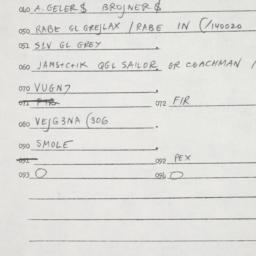 040 A. GELER $ BROJNER $
050 RABE GL GREJLAX / RABE IN (/140020
051 S1V GL GREY
060 JAM+C+IK QGL SAILOR OR COACHMAN /
070 VUGN7
071 FIR 072 FIR
080 VEJG3NA (30G
090 SMOLE
091 092 PEX
093 O 096 O